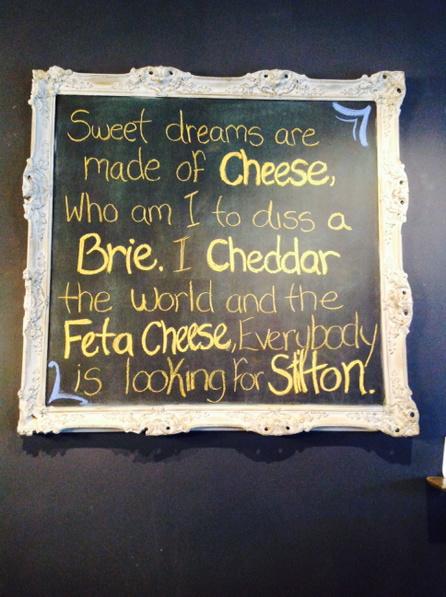 Sweet dreams are
made of Cheese,
Who am I to diss a
Brie. I Cheddar
the world and the
Feta Cheese, Everybody
is looking for Stilton.